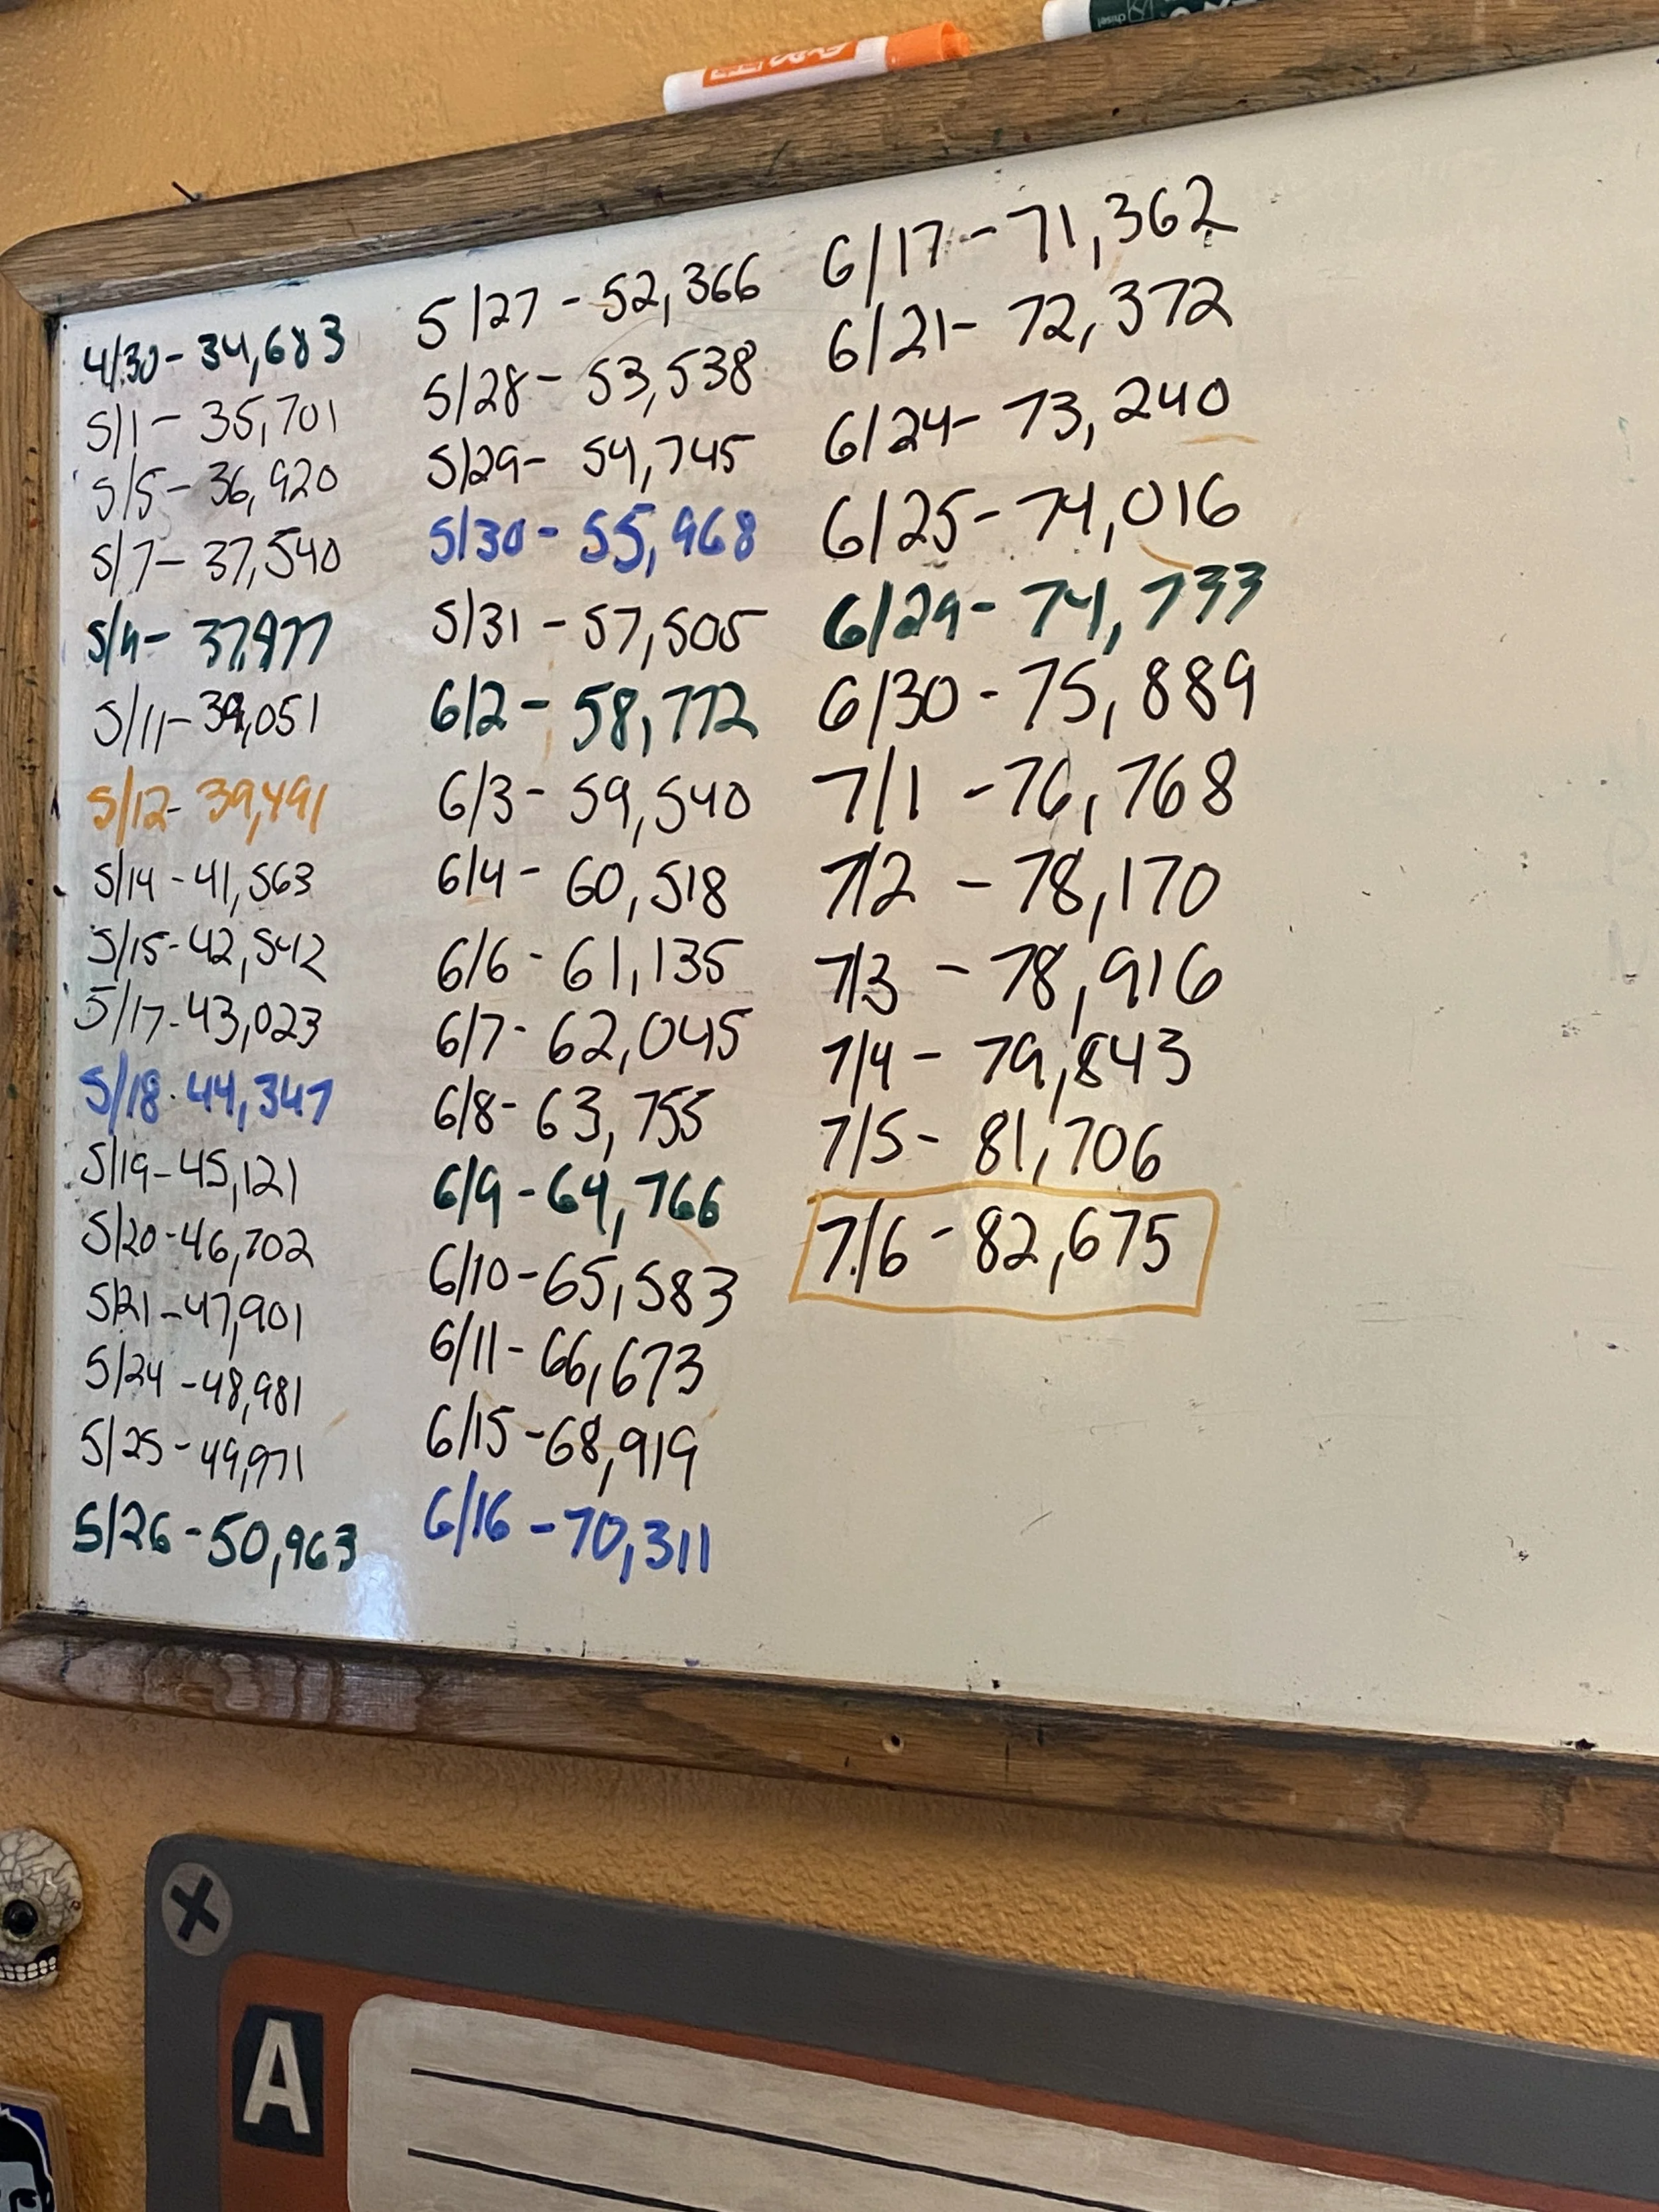 4/30- 34,683
5/1- 35,701
5/5- 36,920
5/7- 37,540
5/9- 37,977
5/11- 39,051
5/12- 39,491
5/14- 41,563
5/15- 42,542
5/17- 43,023
5/18- 44,347
5/19- 45,121
5/20- 46,702
5/21- 47,901
5/24- 48,981
5/25- 49,971
5/26- 50,963
5/27- 52,366
5/28- 53,538
5/29- 54,745
5/30- 55,968
5/31- 57,505
6/2- 58,772
6/3- 59,540
6/4- 60,518
6/6- 61,135
6/7- 62,045
6/8- 63,755
6/9- 64,766
6/10- 65,583
6/11- 66,673
6/15- 68,919
6/16- 70,311
6/17- 71,362
6/21- 72,372
6/24- 73,240
6/25- 74,016
6/29- 74,733
6/30- 75,889
7/1- 76,768
7/2- 78,170
7/3- 78,916
7/4- 79,843
7/5- 81,706
7/6- 82,675
A